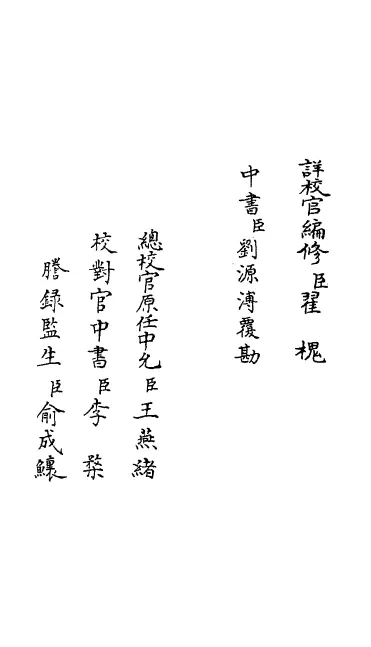 詳校官編修臣翟槐
中書臣劉源溥覆勘
總校官原任中允臣王燕緒
校對官中書臣李楘
謄録監生臣俞成鑲